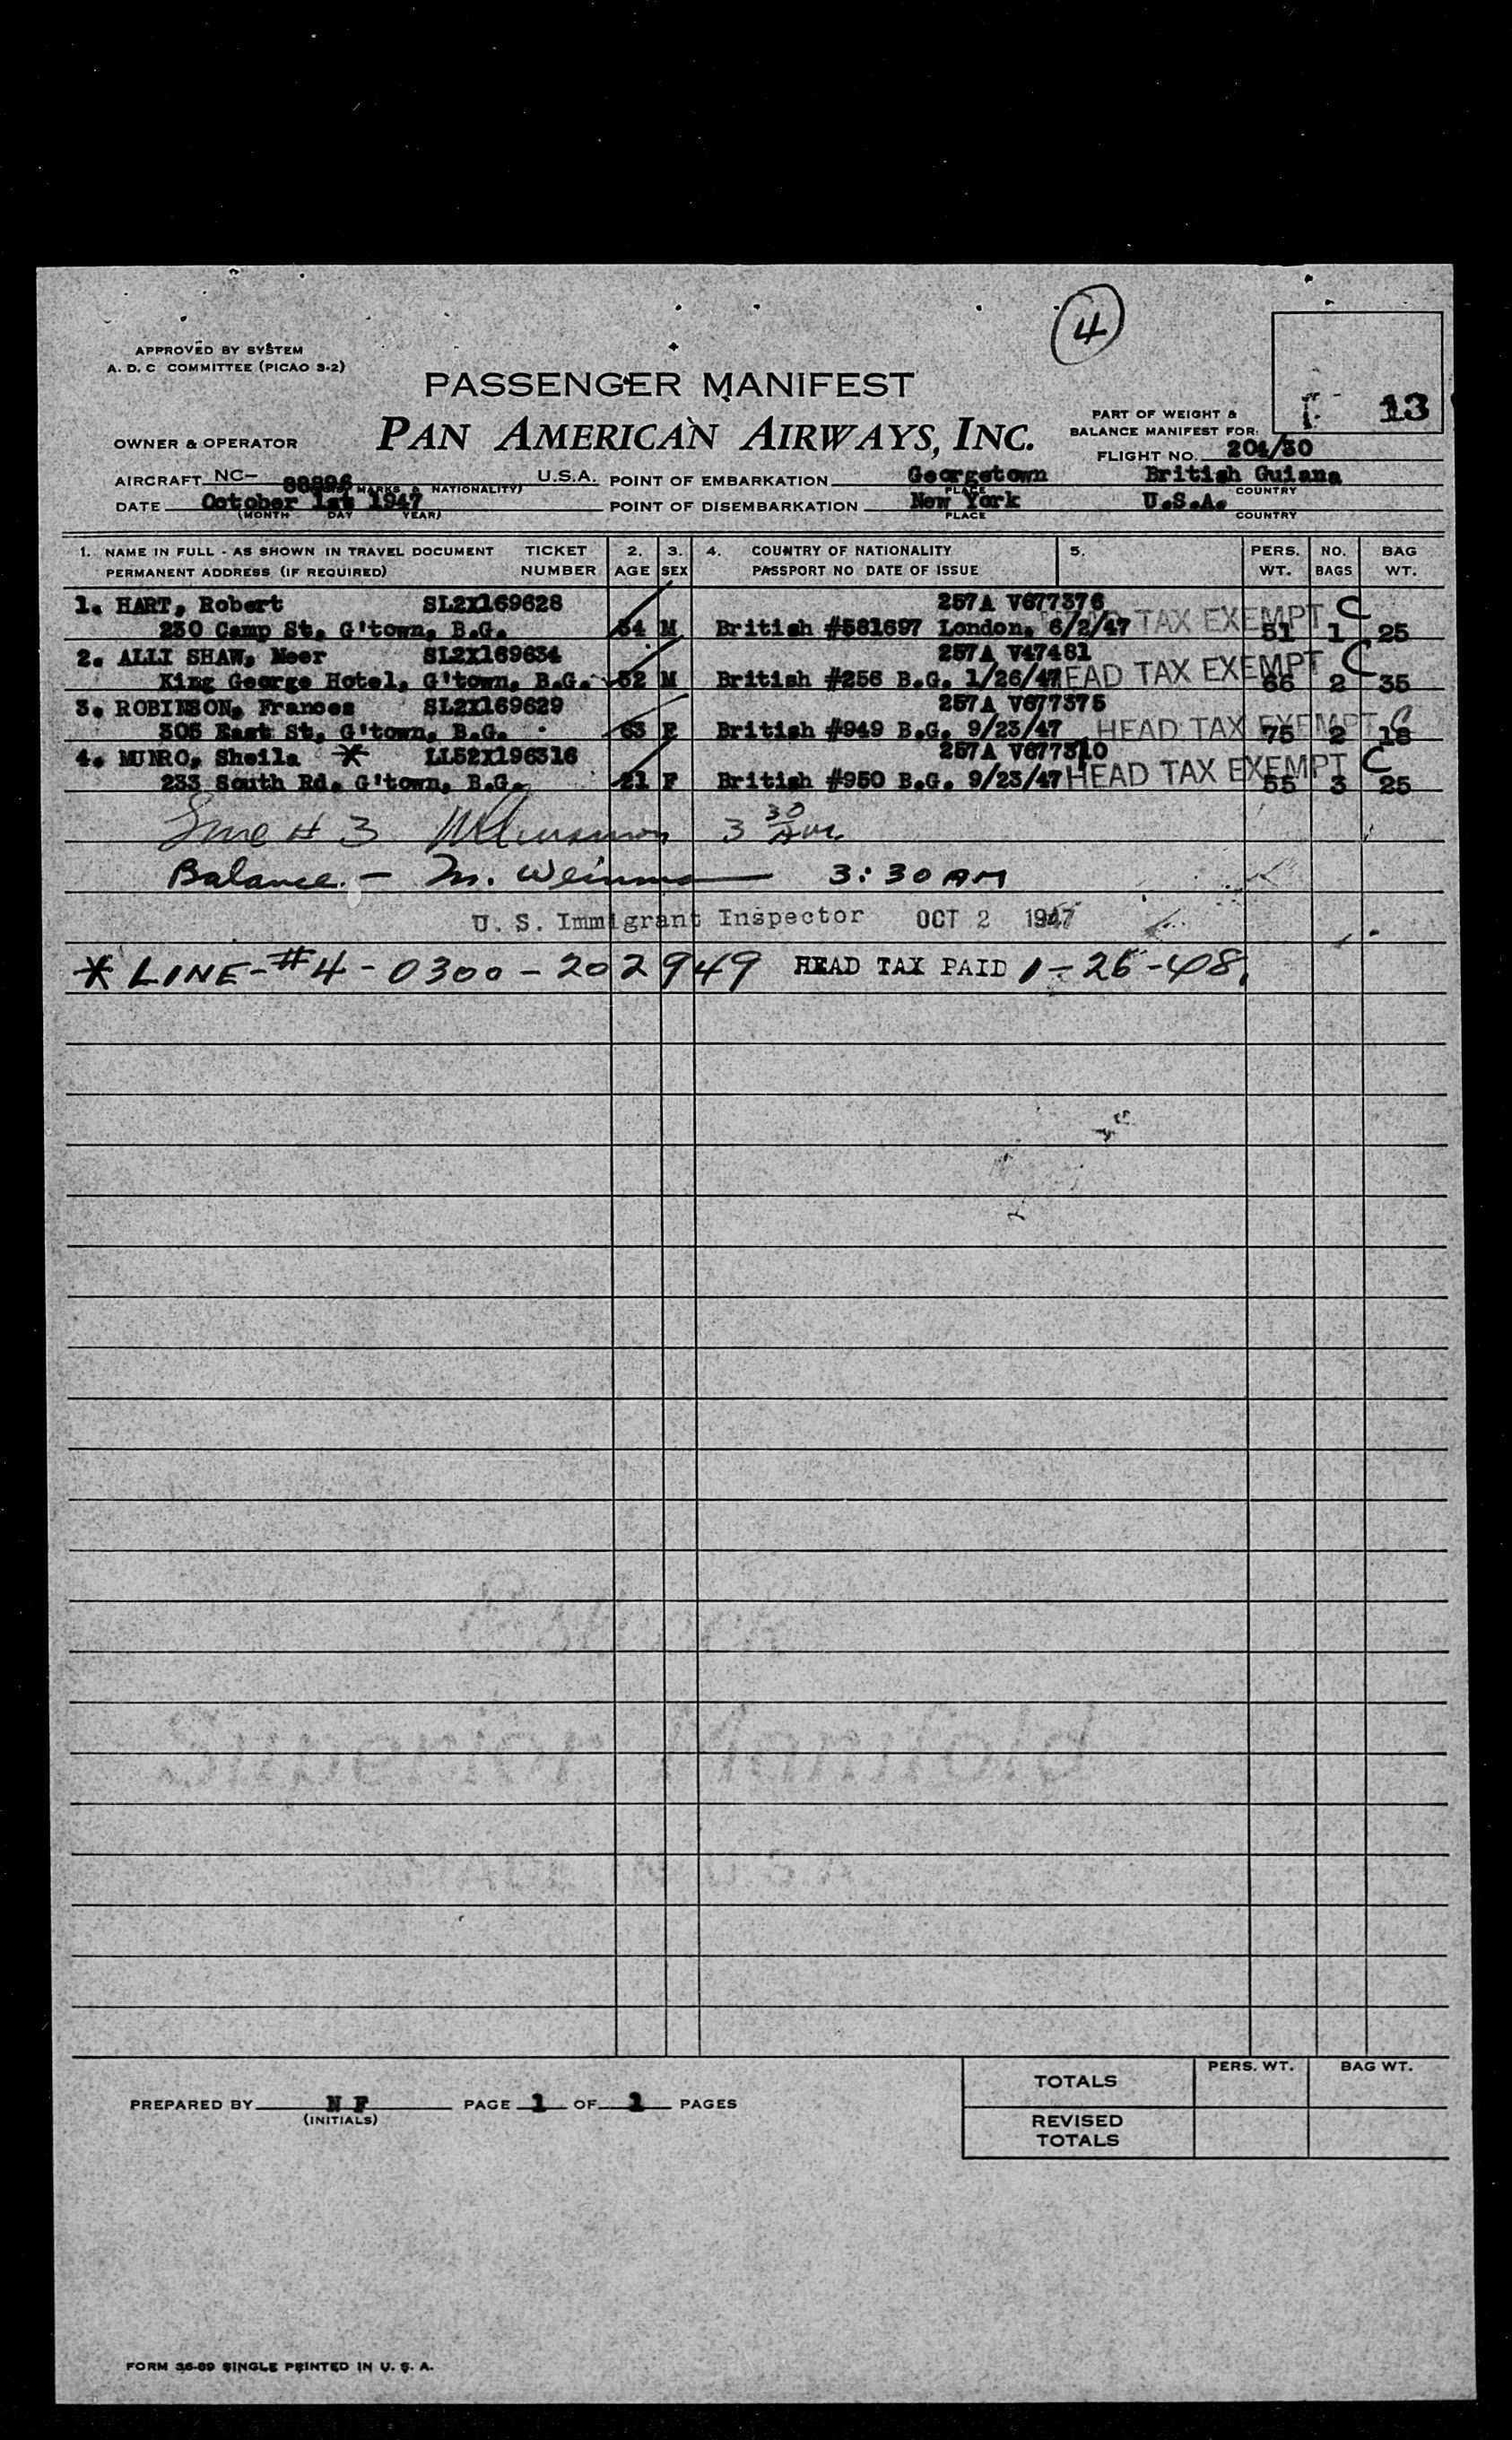 4
APPROVED BY SYSTEM
A. D. C COMMITTEE (PICAO 3-2)
PASSENGER MANIFEST
13
PART OF WEIGHT &
BALANCE MANIFEST FOR:
OWNER & OPERATOR
PAN AMERICAN AIRWAYS, INC.
FLIGHT NO. 204/30
AIRCRAFT NC- 88896 U.S.A. POINT OF EMBARKATION Georgetown British Guiana
MARKS & NATIONALITY) PLACE COUNTRY
DATE October 1st 1947 POINT OF DISEMBARKATION New York U.S.A.
(MONTH DAY YEAR) PLACE COUNTRY
1. NAME IN FULL - AS SHOWN IN TRAVEL DOCUMENT TICKET 2. 3. 4. COUNTRY OF NATIONALITY 5. PERS. NO. BAG
PERMANENT ADDRESS (IF REQUIRED) NUMBER AGE SEX PASSPORT NO DATE OF ISSUE WT. BAGS WT.
1. HART, Robert SL2X169628 257A V677376
230 Camp St, G'town, B.G. 54 M British #581697 London, 6/2/47 TAX EXEMPT 51 1 C 25
2. ALLI SHAW, Meer SL2X169634 257A V47481
King George Hotel, G'town, B.G. 52 M British #256 B.G. 1/26/47 HEAD TAX EXEMPT 66 2 C 35
3. ROBINSON, Frances SL2X169629 257A V677375
305 East St, G'town, B.G. 63 F British #949 B.G. 9/23/47 HEAD TAX EXEMPT 75 2 C 18
4. MUNRO, Sheila * LL52X196316 257A V677310
233 South Rd. G'town, B.G. 21 F British #950 B.G. 9/23/47 HEAD TAX EXEMPT 55 3 C 25
Line # 3 3 30 AM
Balance. - M. 3:30 AM
U. S. Immigrant Inspector OCT 2 1947
* LINE-#4 - 0300-202949 HEAD TAX PAID 1-26-48
Superior Manifold
MADE IN U.S.A.
PERS. WT. BAG WT.
TOTALS
PREPARED BY N F PAGE 1 OF 1 PAGES
(INITIALS)
REVISED
TOTALS
FORM 36-09 SINGLE PRINTED IN U. S. A.